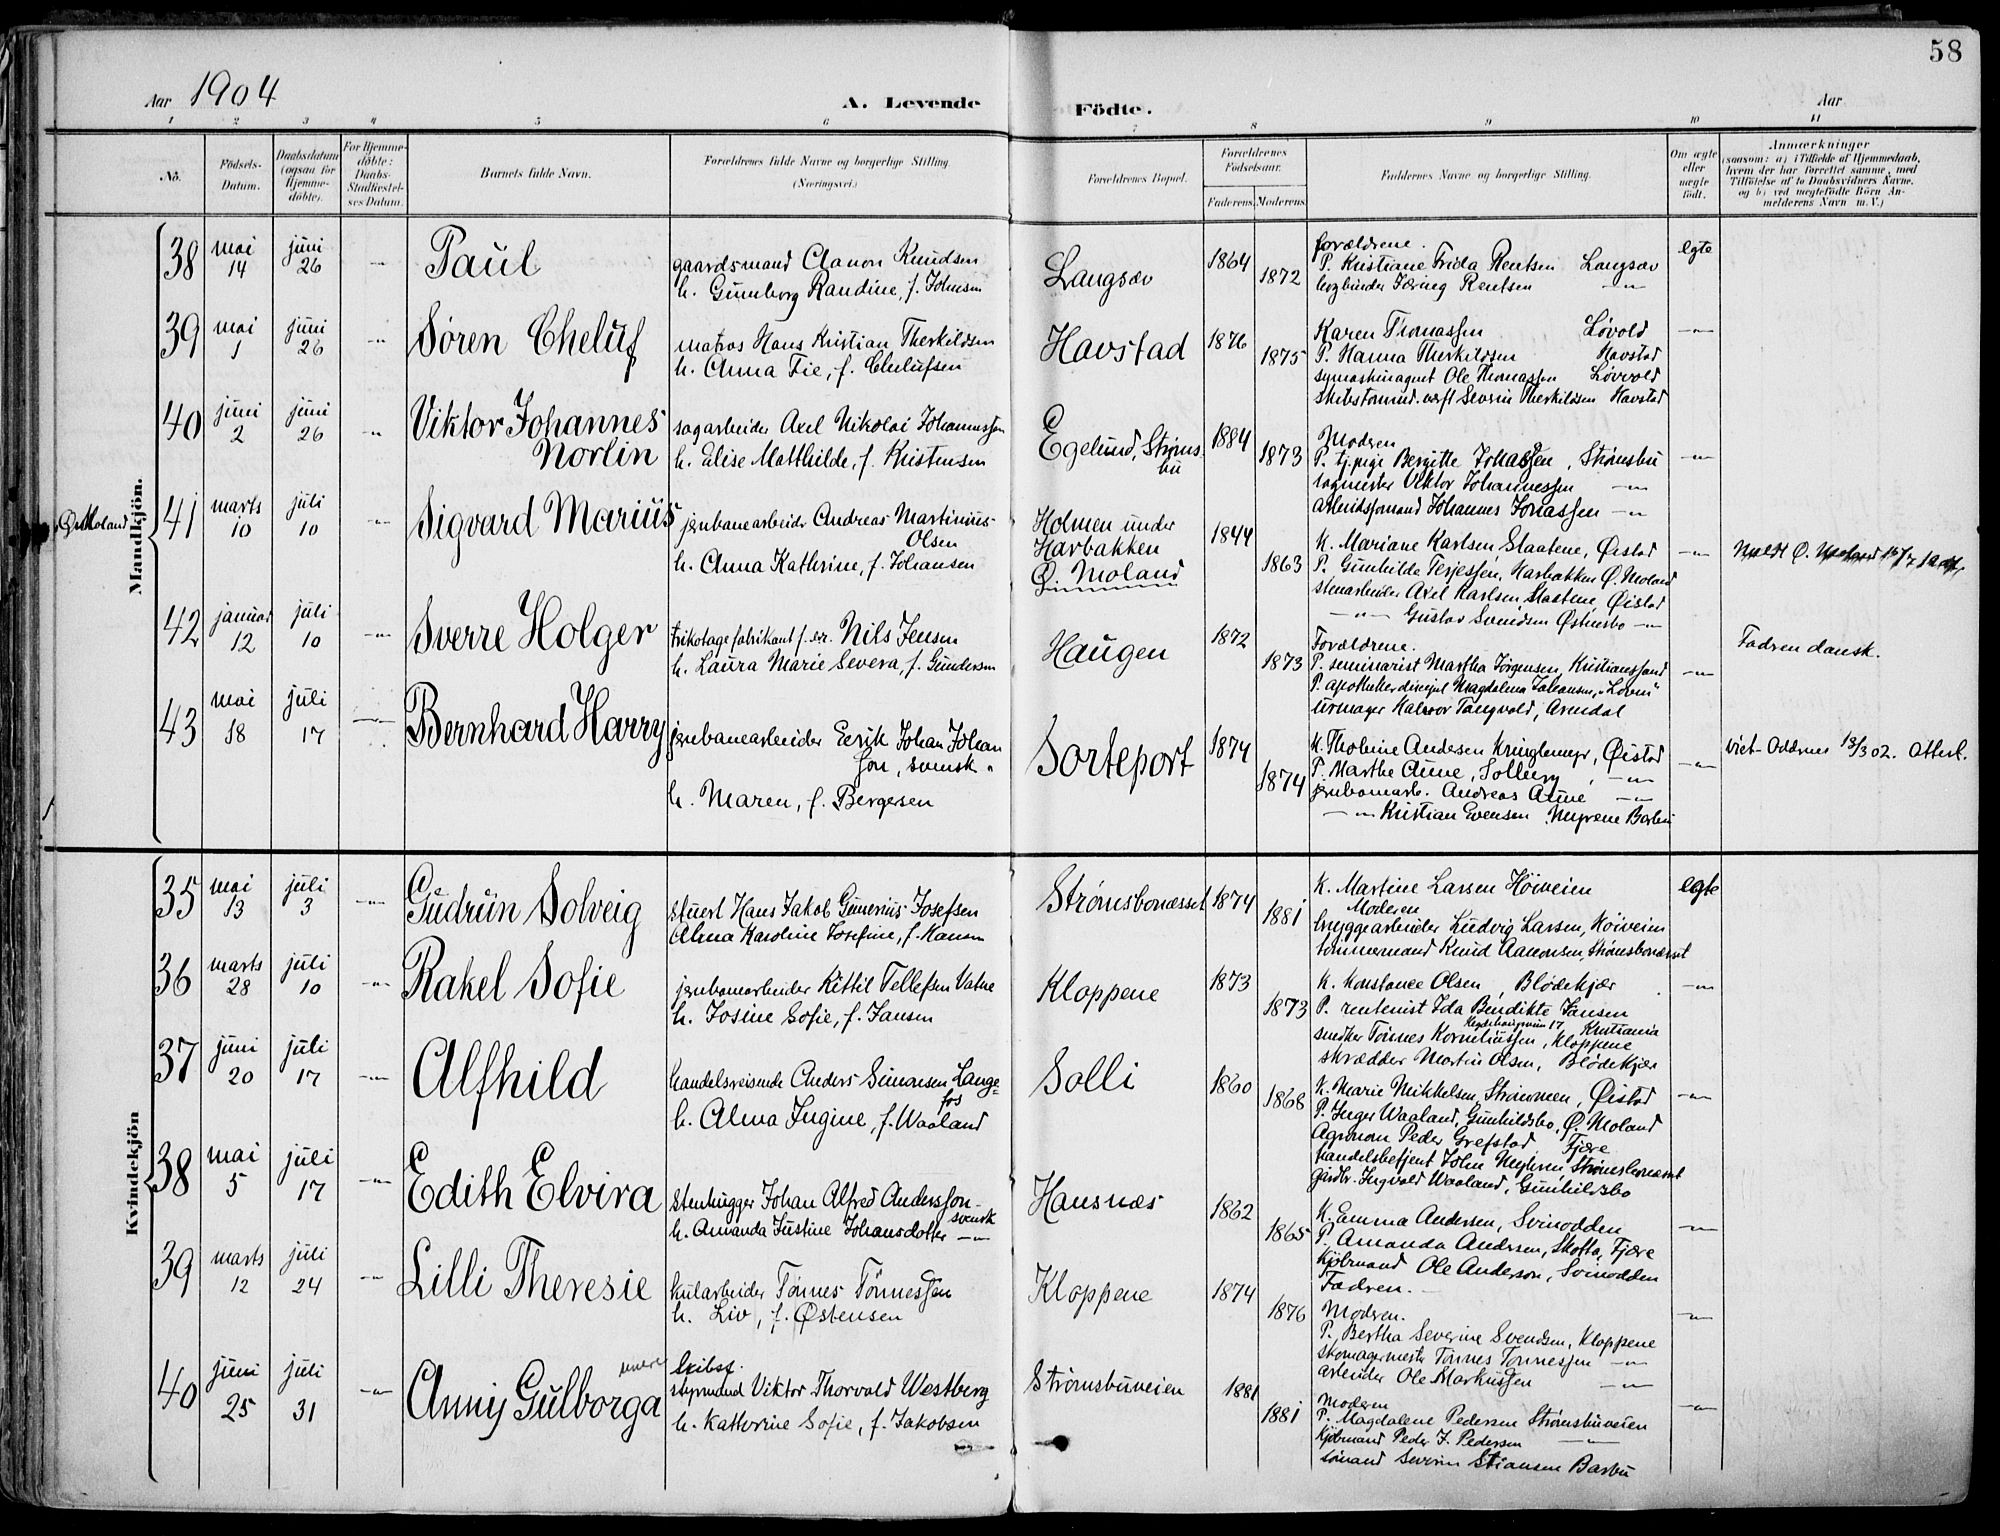 58
Aar 1904
A. Levende Födte.
Aar
1 2 3 4 5 6 7 8 9 10 11
No.
Födsels-Datum.
Daabsdatum (ogsaa for Hjemme-döbte).
For Hjemme-döbte: Daabs-Stadfæstel-ses Datum.
Barnets fulde Navn.
Forældrenes fulde Navne og borgerlige Stilling. (Næringsvei.)
Forældrenes Bopæl.
Forældrenes Födselsaar.
Faderens. Moderens.
Faddernes Navne og borgerlige Stilling.
Om ægte eller uægte födt.
Anmærkninger
(saasom: a) i Tilfælde af Hjemmedaab,
hvem der har forrettet samme, med
Tilföielse af to Daabsvidners Navne,
og b) ved uægtefödte Börn An-
melderens Navn m. V.)
Mandkjön.
38 mai 14 juni 26 -"- Paul
gaardsmand Aanon Knudsen
h. Gunborg Randine, f. Johnsen
Langsæv 1864 1872
forældrene.
P. Kristiane Frida Rentsen Langsæv
Rentsen -"-
egte
39 mai 1 juni 26 -"- Søren Cheluf
matros Hans Kristian Therkildsen
h. Anna Fie, f. Chelufsen
Havstad 1876 1875
Karen Thomassen Løvold
P. Hanna Therkildsen Havstad
symaskinagent Ole Thomassen Løvold
Severin Therkildsen Havstad
-"-
40 juni 2 juni 26 -"- Viktor Johannes Norlin
sagarbeider Axel Nikolai Johannessen
h. Elise Mathilde, f. Kristensen
Egelund, Strømsbu 1884 1873
Moderen
P. tj.pige Bergitte Johassen, Strømsbu
sagmester Viktor Johannessen -"-
arbeidsformand Johannes Jonassen -"-
-"-
Ø. Moland
41 marts 10 juli 10 -"- Sigvard Marius
jernbanearbeider Andreas Martinius Olsen
h. Anna Kathrine, f. Johansen
Holmen under
Harbakken
Ø. Moland
1844 1863
K. Mariane Karlsen, Slaatene, Øistad
P. Gunhilde Terjessen, Harbakken Ø. Moland
stenarbeider Axel Karlsen Slaatene, Øistad
-"- Gustav Svendsen -"-
-"-
Meldt Ø. Moland
42 januar 12 juli 10 -"- Sverre Holger
trikotagefabrikant Nils Jensen
h. Laura Marie Severa, f. Gundersen
Haugen 1872 1873
Forældrene.
P. seminarist Martha Jørgensen, Kristianssand
P. apothekerdiscipel Magdalena Johansen, "Loven"
urmager Halvor Tangvald, Arendal
-"-
Fadren dansk.
43 mai 18 juli 17 -"- Bernhard Harry
jernbanearbeider Eerik Johan Johansson, svensk.
h. Maren, f. Bergersen
Sorteport 1874 1874
K. Thobine Andersen Kringlemyr, Øistad
P. Marthe Aune, Solberg, -"-
jernbanearb. Andreas Aune -"-
-"- Kristian Evensen Myrene Barbu
-"-
viet Oddernes 13/3 02.
Kvindekjön
35 mai 13 juli 3 -"- Gudrun Solveig
stuert Hans Jakob Gunerius Josefsen
Alma Karoline Josefine, f. Hansen
Strømsbonæsset 1874 1881
K. Martine Larsen Høiveien
Moderen
bryggearbeider Ludvig Larsen, Høiveien
tømmermand Knud Aanonsen, Strømsbonæsset
egte
36 marts 28 juli 10 -"- Rakel Sofie
jernbanearbeider Kittil Tellefsen Vatne
h. Josine Sofie, f. Jansen
Kloppene 1873 1873
K. Konstance Olsen, Blødekjær
P. rentenist Ida Bendikte Jansen
Kristiania
snedker Tønnes Korneliussen, Kloppene
skrædder Martin Olsen, Blødekjær
-"-
37 juni 20 juli 17 -"- Alfhild
handelsreisende Anders Simonsen Langefos
h. Alma Ingine, f. Waaland
Solli 1860 1868
K. Marie Mikkelsen, Strømmen, Øistad
P. Inger Waaland, Gunhildsbo, Ø. Moland
Agronom Peder Grefstad Fjære
handelsbetjent John Myhren, Strømsbonæsset
gårdbr. Ingvald Waaland, Gunhildsbo
-"-
38 mai 5 juli 17 -"- Edith Elvira
stenhugger Johan Alfred Andersson svensk
h. Amanda Justine Johansdotter -"-
Hansnæs 1862 1865
K. Emma Andersen, Svinodden
P. Amanda Andersen, Skofta, Fjære
kjøbmand Ole Anderson, Svinodden
Fadren.
-"-
39 marts 12 juli 24 -"- Lilli Theresie
kularbeider Tønnes Tønnessen
h. Liv, f. Østensen
Kloppene 1874 1876
Moderen.
P. Bertha Severine Svendsen, Kloppene
skomagermester Tønnes Tønnesjen -"-
arbeider Ole Markussen -"-
-"-
40 juni 25 juli 31 -"- Anny Gulborga
skibsf.
styrmand Viktor Thorvald Westberg
h. Katherine Sofie, f. Jakobsen
Strømsbuveien 1881 1881
Moderen
P. Magdalene Pedersen Strømsbuveien
kjøbmand Peder J. Pedersen -"-
sømand Severin Stiansen Barbu
-"-